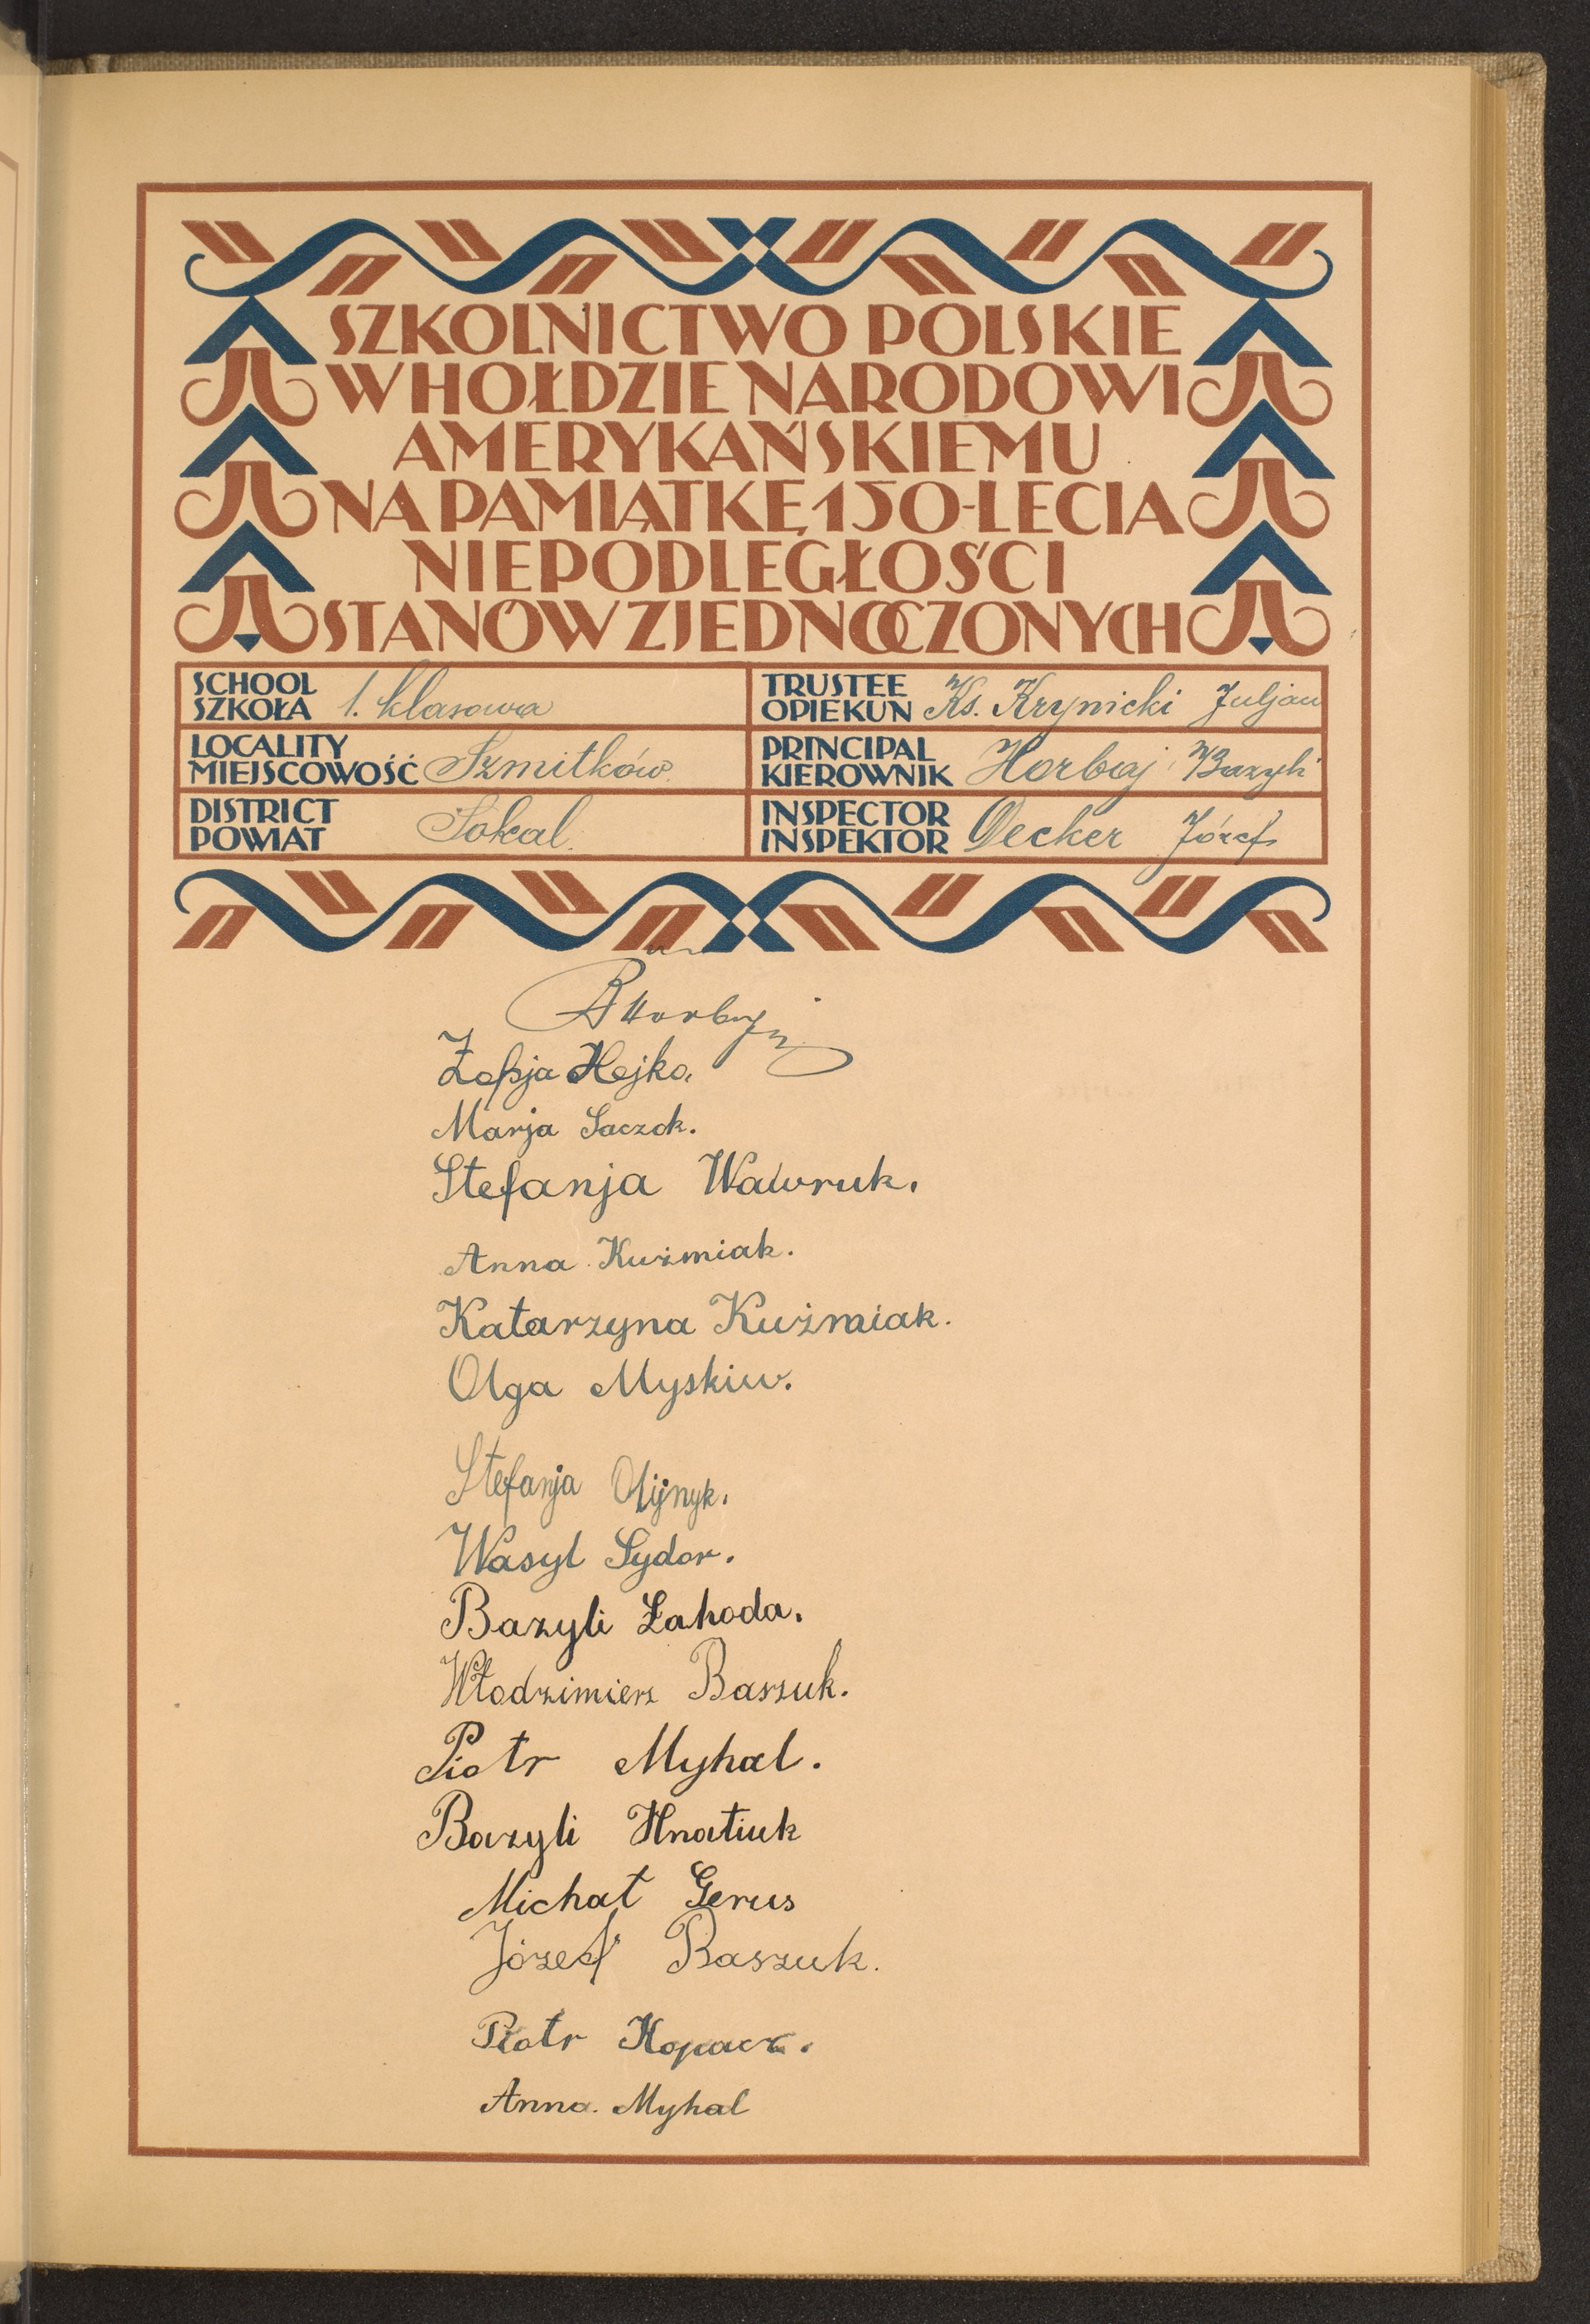 SZKOLNICTWO POLSKIE
W HOŁDZIE NARODOWI
AMERYKAŃSKIEMU
NA PAMIĄTKĘ 150-LECIA
NIEPODLEGŁOŚCI
STANÓW ZJEDNOCZONYCH
SCHOOL
SZKOŁA 1. klasowa
TRUSTEE
OPIEKUN Ks. Krynicki Juljan
LOCALITY
MIEJSCOWOŚĆ Szmitków.
PRINCIPAL
KIEROWNIK Horbaj Bazyli
DISTRICT
POWIAT Sokal.
INSPECTOR
INSPEKTOR Decker Józef
BHorbaj
Zofja Hejko.
Marja Saczok.
Stefanja Wawruk.
Anna Kuźmiak.
Katarzyna Kuźmiak.
Olga Myskiw.
Stefanja Olijnyk.
Wasyl Sydor.
Bazyli Łahoda.
Włodzimierz Baszuk.
Piotr Myhal.
Bazyli Hnatiuk
Michał Gerus
Józef Baszuk.
Piotr Kopacz.
Anna. Myhal